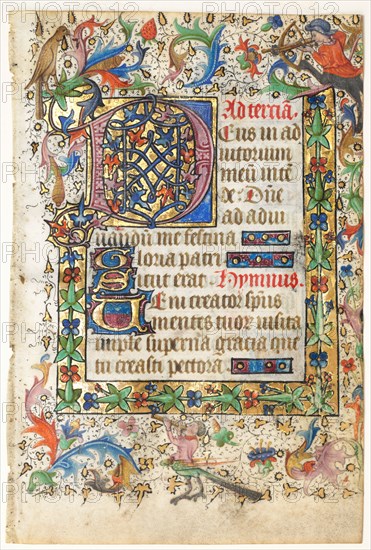 Ad terciā.
Deus in ad
iutorium
meū intē
de: Dn̄e
ad adiu
uandum me festina
Gloria patri
Sicut erat Hymnus.
Veni creator sp̄us
mentes tuor̄ uisita
imple superna gracia que
tu creasti pectora